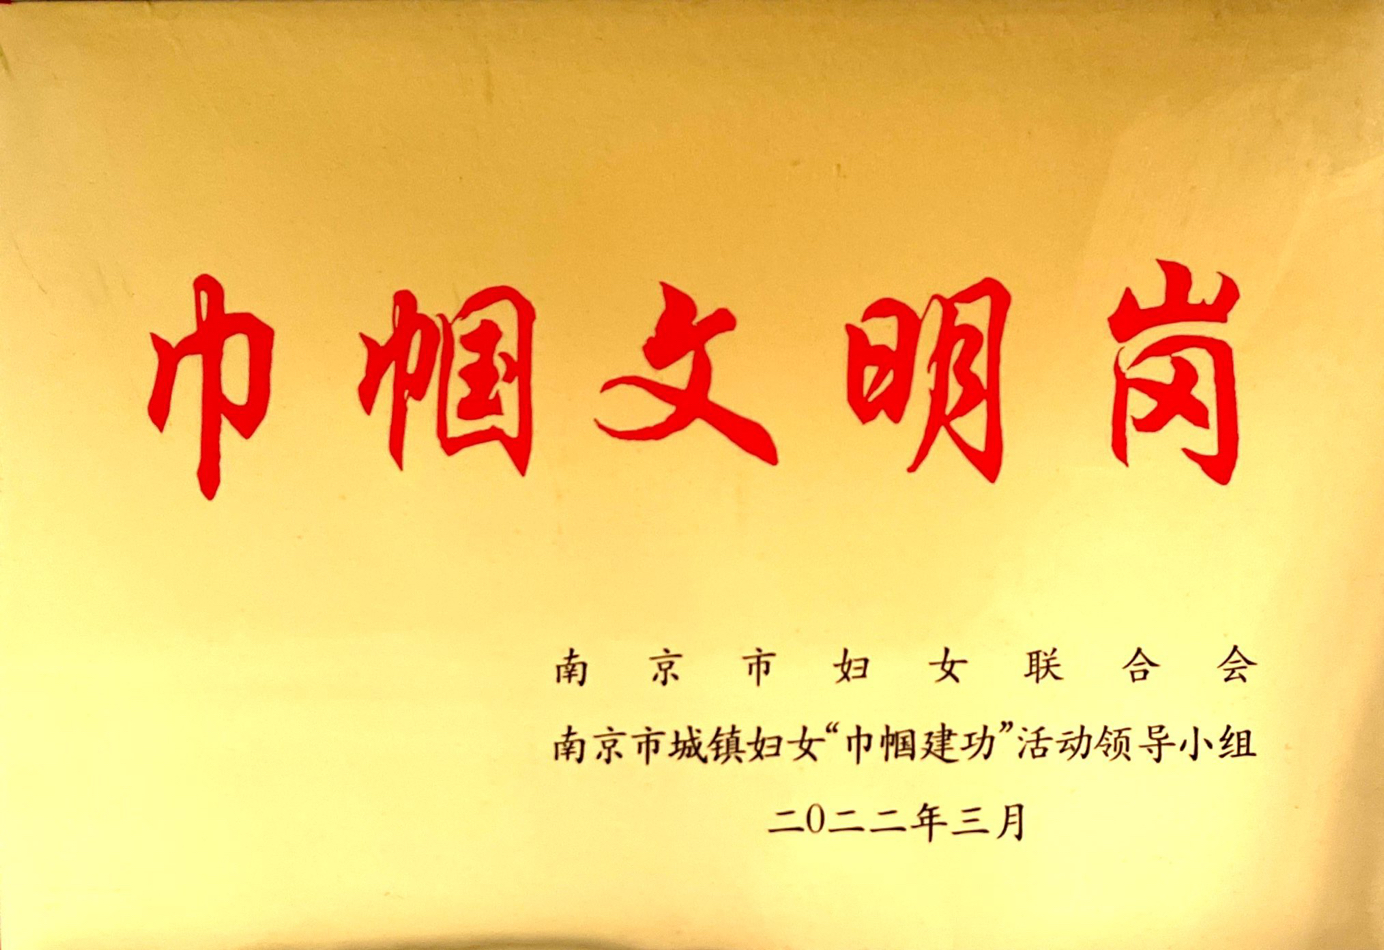 巾帼文明岗
南京市妇女联合会
南京市城镇妇女“巾帼建功”活动领导小组
二0二二年三月